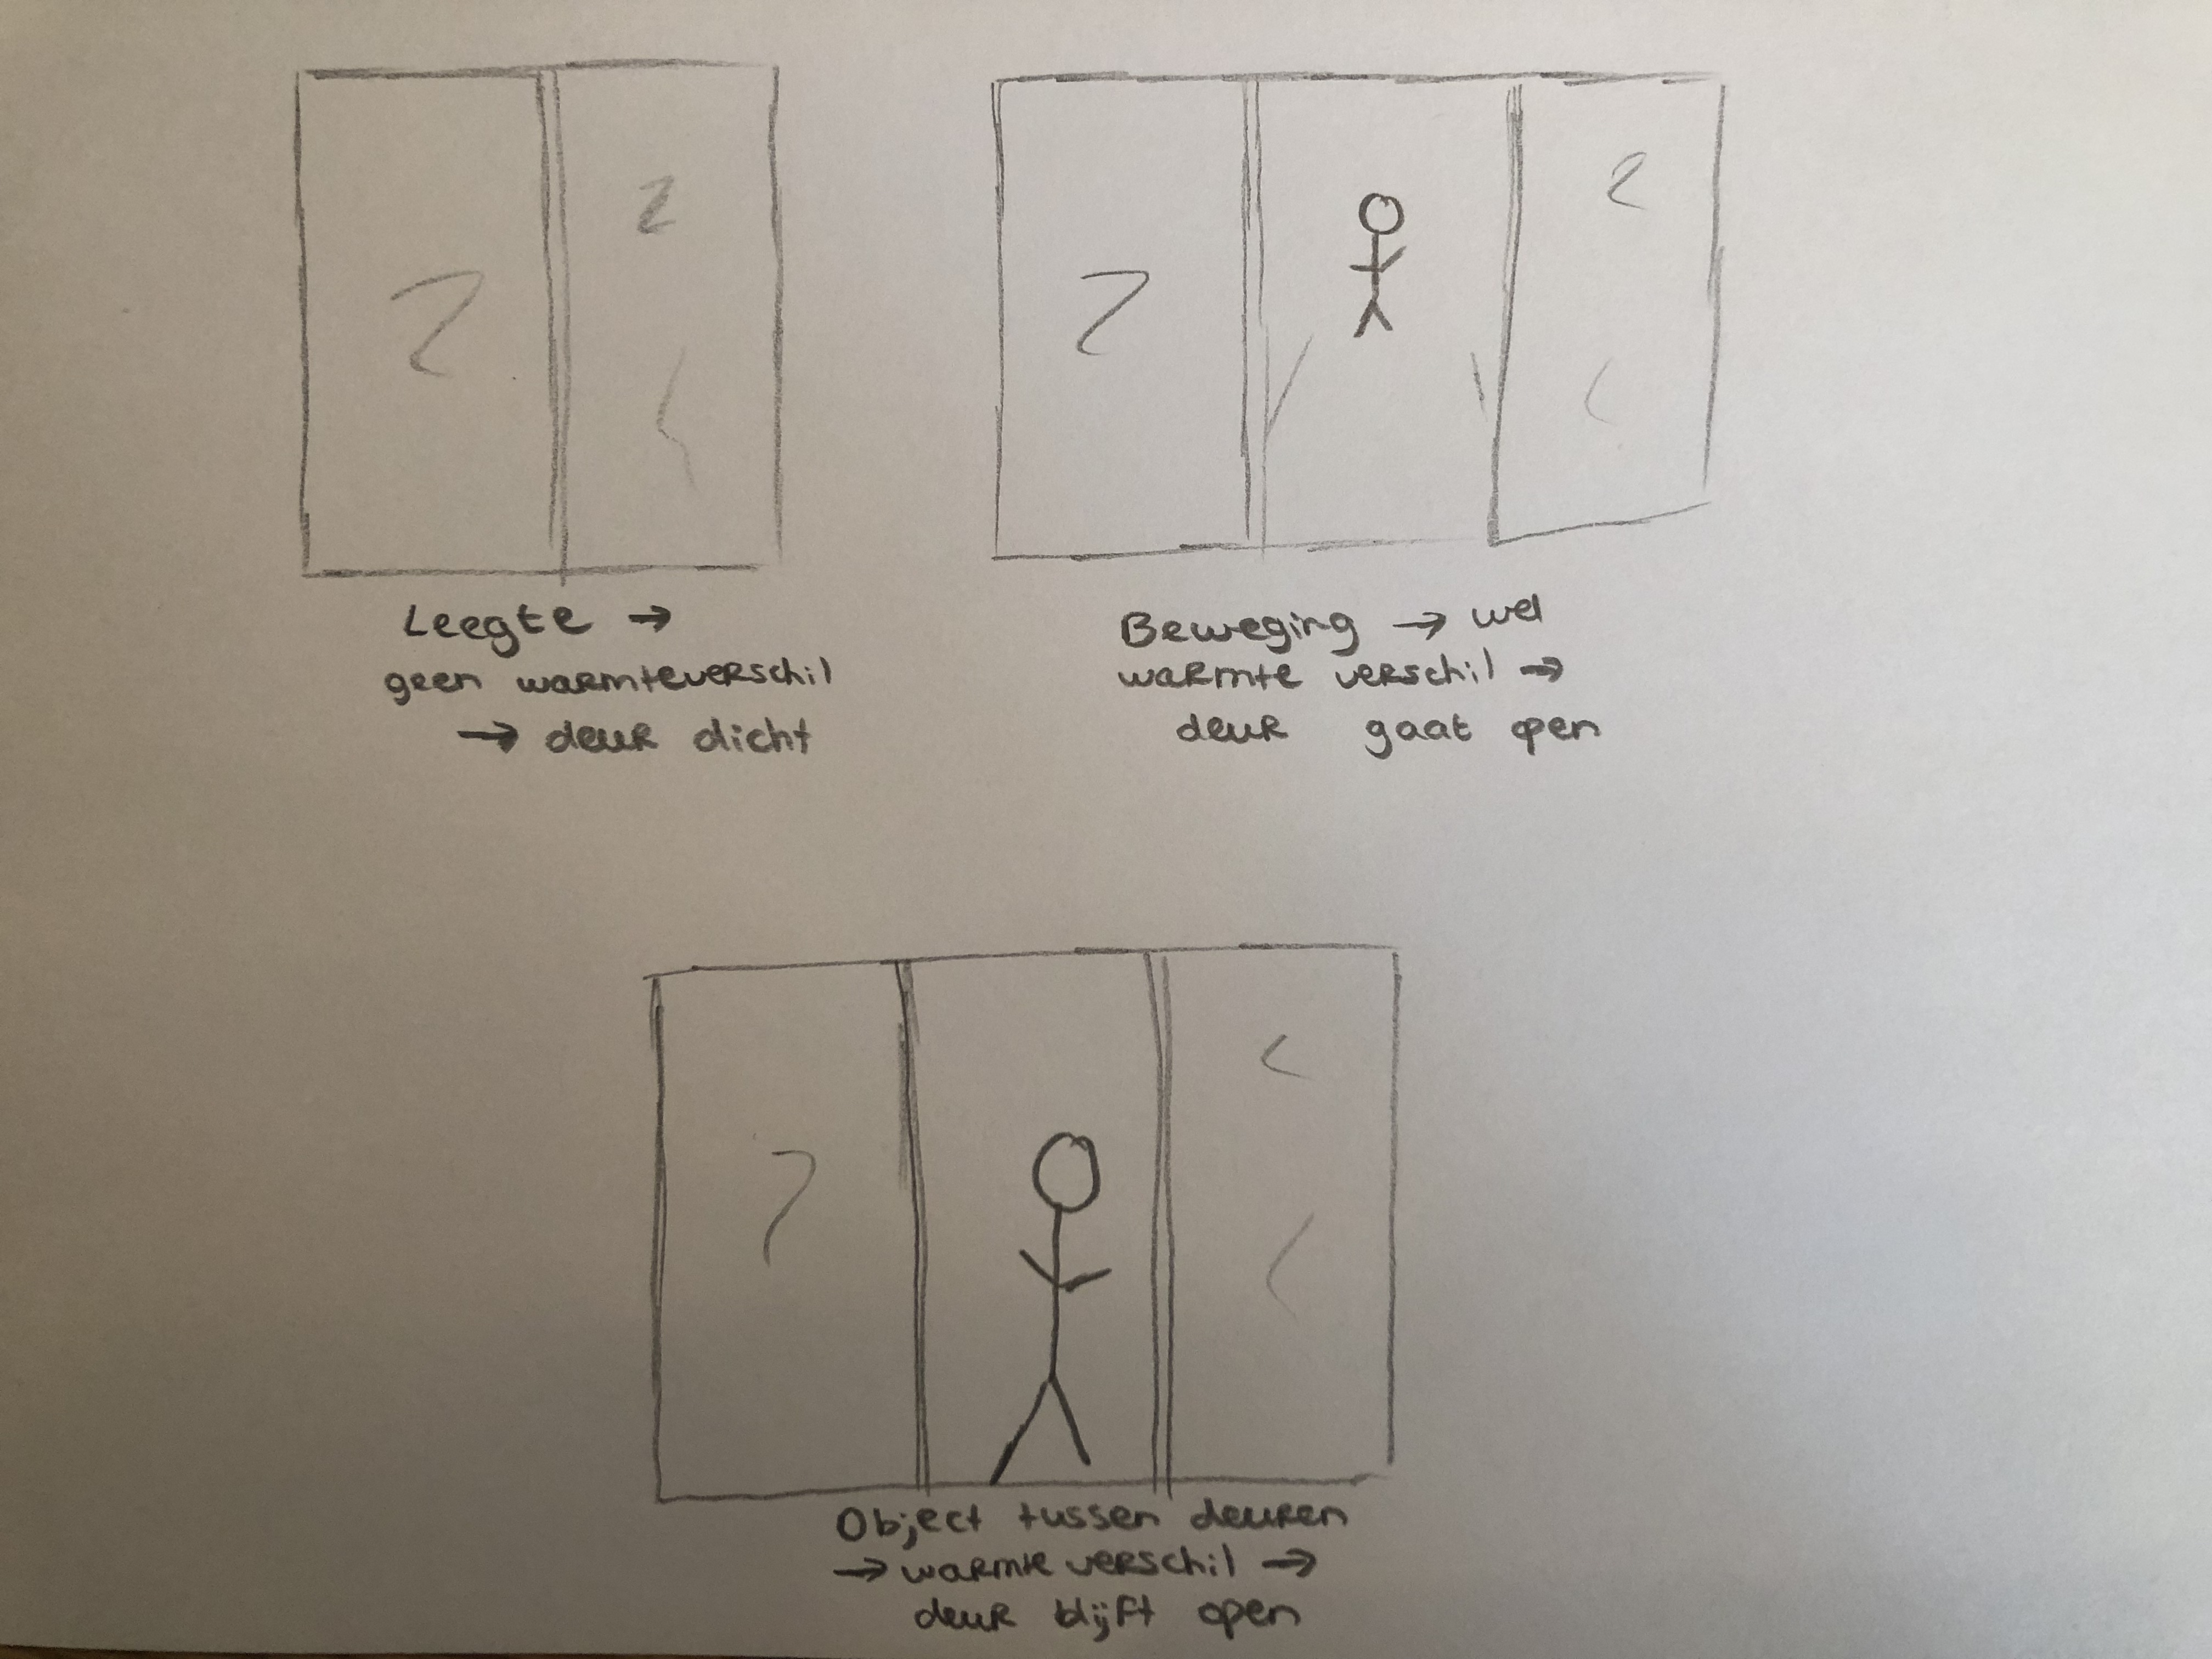 Leegte →
geen warmteverschil
→ deur dicht
Beweging → wel
warmte verschil →
deur gaat open
Object tussen deuren
→ warmte verschil →
deur blijft open